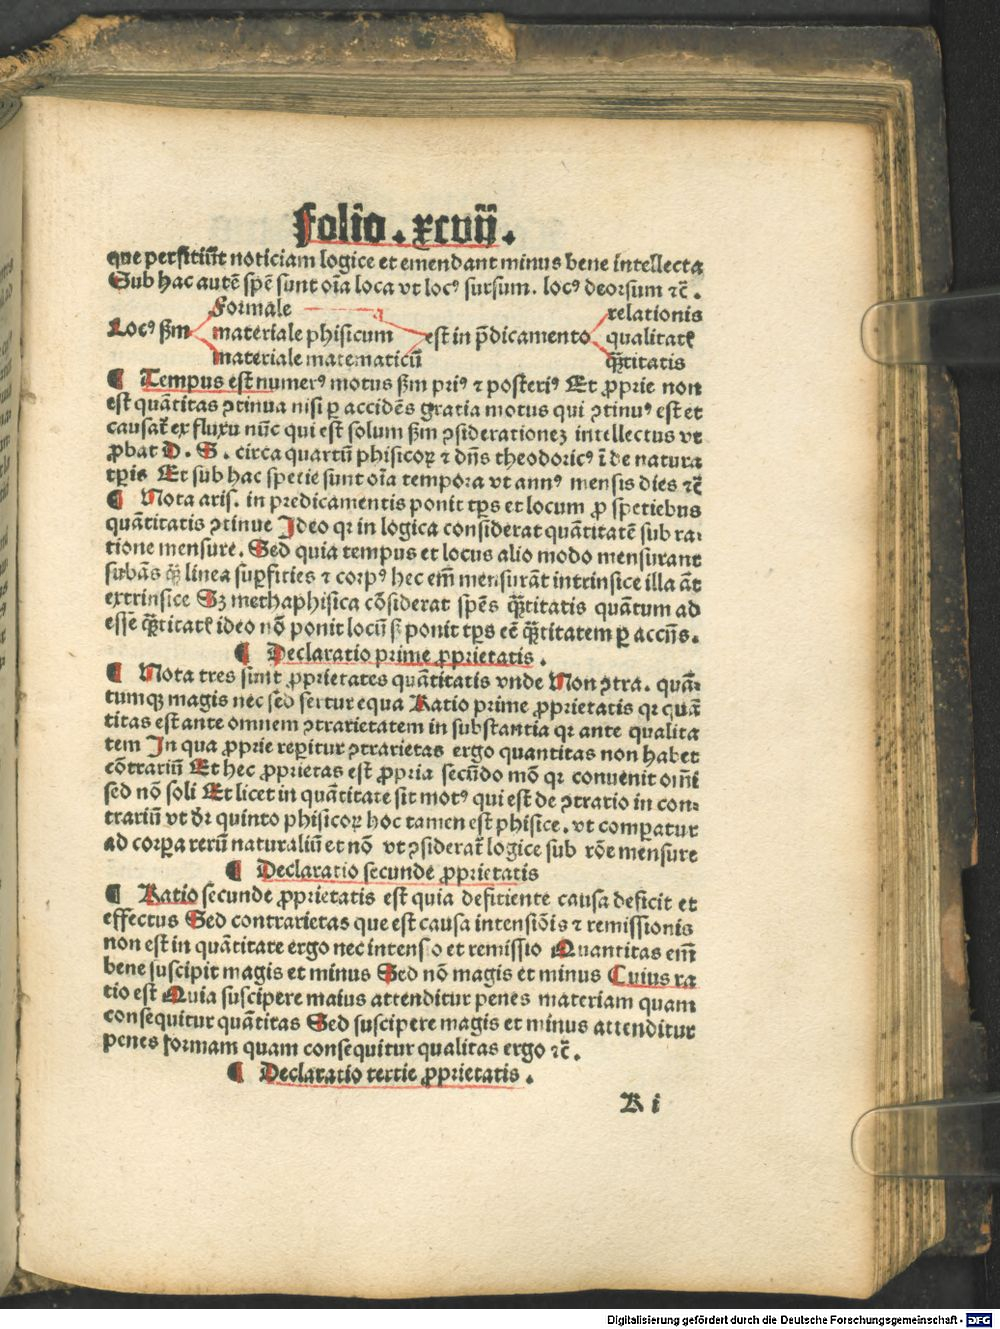 Folio . xcvij .
que perficiũt noticiam logice et emendant minus bene intellecta
Sub hac autẽ spẽ sunt oĩa loca vt locꝰ sursum. locꝰ deorsum ⁊c̃ .
Formale
Locꝰ ẜm materiale phisicum est in p̃dicamento relationis
qualitatꝭ
materiale matematicũ q̃ꝫtitatis
¶ Tempus est numerꝰ motus ẜm priꝰ ⁊ posteriꝰ Et ꝓprie non
est quãtitas ꝯtinua nisi ꝑ accidẽs gratia motus qui ꝯtinuꝰ est et
causat̃ ex fluxu nũc qui est solum ẜm ꝯsiderationeꝫ intellectus vt
ꝓbat D . S . circa quartũ phisicoꝝ ⁊ dñs theodoricꝰ ĩ de natura
tꝑis Et sub hac specie sunt oĩa tempora vt annꝰ mensis dies ⁊c̃
¶ Nota aris. in predicamentis ponit tꝑs et locum ꝓ speciebus
quãtitatis ꝯtinue Ideo qꝛ in logica considerat quãtitatẽ sub ra⸗
tione mensure. Sed quia tempus et locus alio modo mensurant
subãs q̃ꝫ linea suꝑficies ⁊ corpꝰ hec em̃ mensurãt intrinsice illa ãt
extrinsice Sꝫ methaphisica cõsiderat spẽs q̃ꝫtitatis quãtum ad
essẽ q̃ꝫtitatꝭ ideo nõ ponit locũ sꝫ ponit tꝑs eẽ q̃ꝫtitatem ꝑ acciñs.
¶ Declaratio prime ꝓprietatis .
¶ Nota tres sunt ꝓprietates quãtitatis vnde Non ꝯtra. quã⸗
tumqꝫ magis nec sed fertur equa Ratio prime ꝓprietatis qꝛ quã
titas est ante omnem ꝯtrarietatem in substantia qꝛ ante qualita
tem In qua ꝓprie reꝑitur ꝯtrarietas ergo quantitas non habet
cõtrariũ Et hec ꝓprietas est ꝓpria secũdo mõ qꝛ conuenit oĩ
sed nõ soli Et licet in quãtitate sit motꝰ qui est de ꝯtrario in con⸗
trariũ vt dꝛ quinto phisicoꝝ hoc tamen est phisice. vt comparatur
ad corꝑa rerũ naturaliũ et nõ vt ꝯsiderat̃ logice sub rõe mensure
¶ Declaratio secunde ꝓprietatis
¶ Ratio secunde ꝓprietatis est quia deficiente causa deficit et
effectus Sed contrarietas que est causa intensiõis ⁊ remissionis
non est in quãtitate ergo nec intensio et remissio Quantitas em̃
bene suscipit magis et minus Sed nõ magis et minus Cuius ra
tio est Quia suscipere maius attenditur penes materiam quam
consequitur quãtitas Sed suscipere magis et minus attenditur
penes formam quam consequitur qualitas ergo ⁊c̃ .
¶ Declaratio tertie ꝓprietatis .
R i
Digitalisierung gefördert durch die Deutsche Forschungsgemeinschaft - DFG